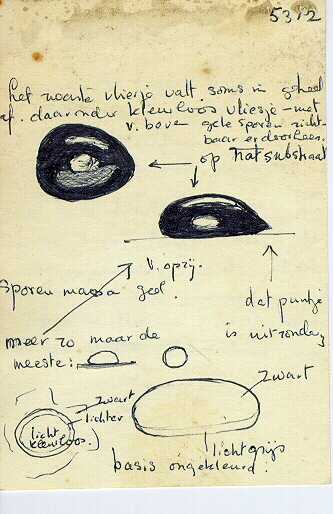 5312
het zwarte vliesje valt soms in geheel
af. daaronder kleurloos vliesje - met
v. boven gele sporen zicht-
baar er doorheen.
op nat substraat
v. opzij.
sporen massa geel.
dat puntje
is uitzondering
meer zo maar de
meeste:
zwart
lichter
licht
kleurloos.
zwart
lichtgrijs
basis ongekleurd.